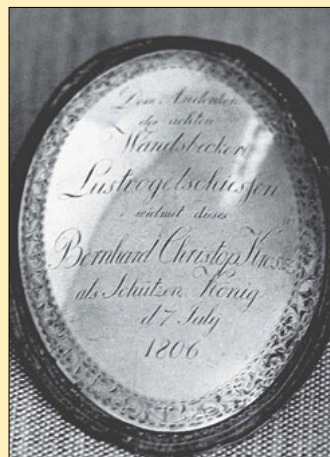 Dem Andenken
des achten
Wandsbecker
Lustvogelschiessen
widmet dieses
Bernhard Christop
als Schützen König
d 7 July
1806